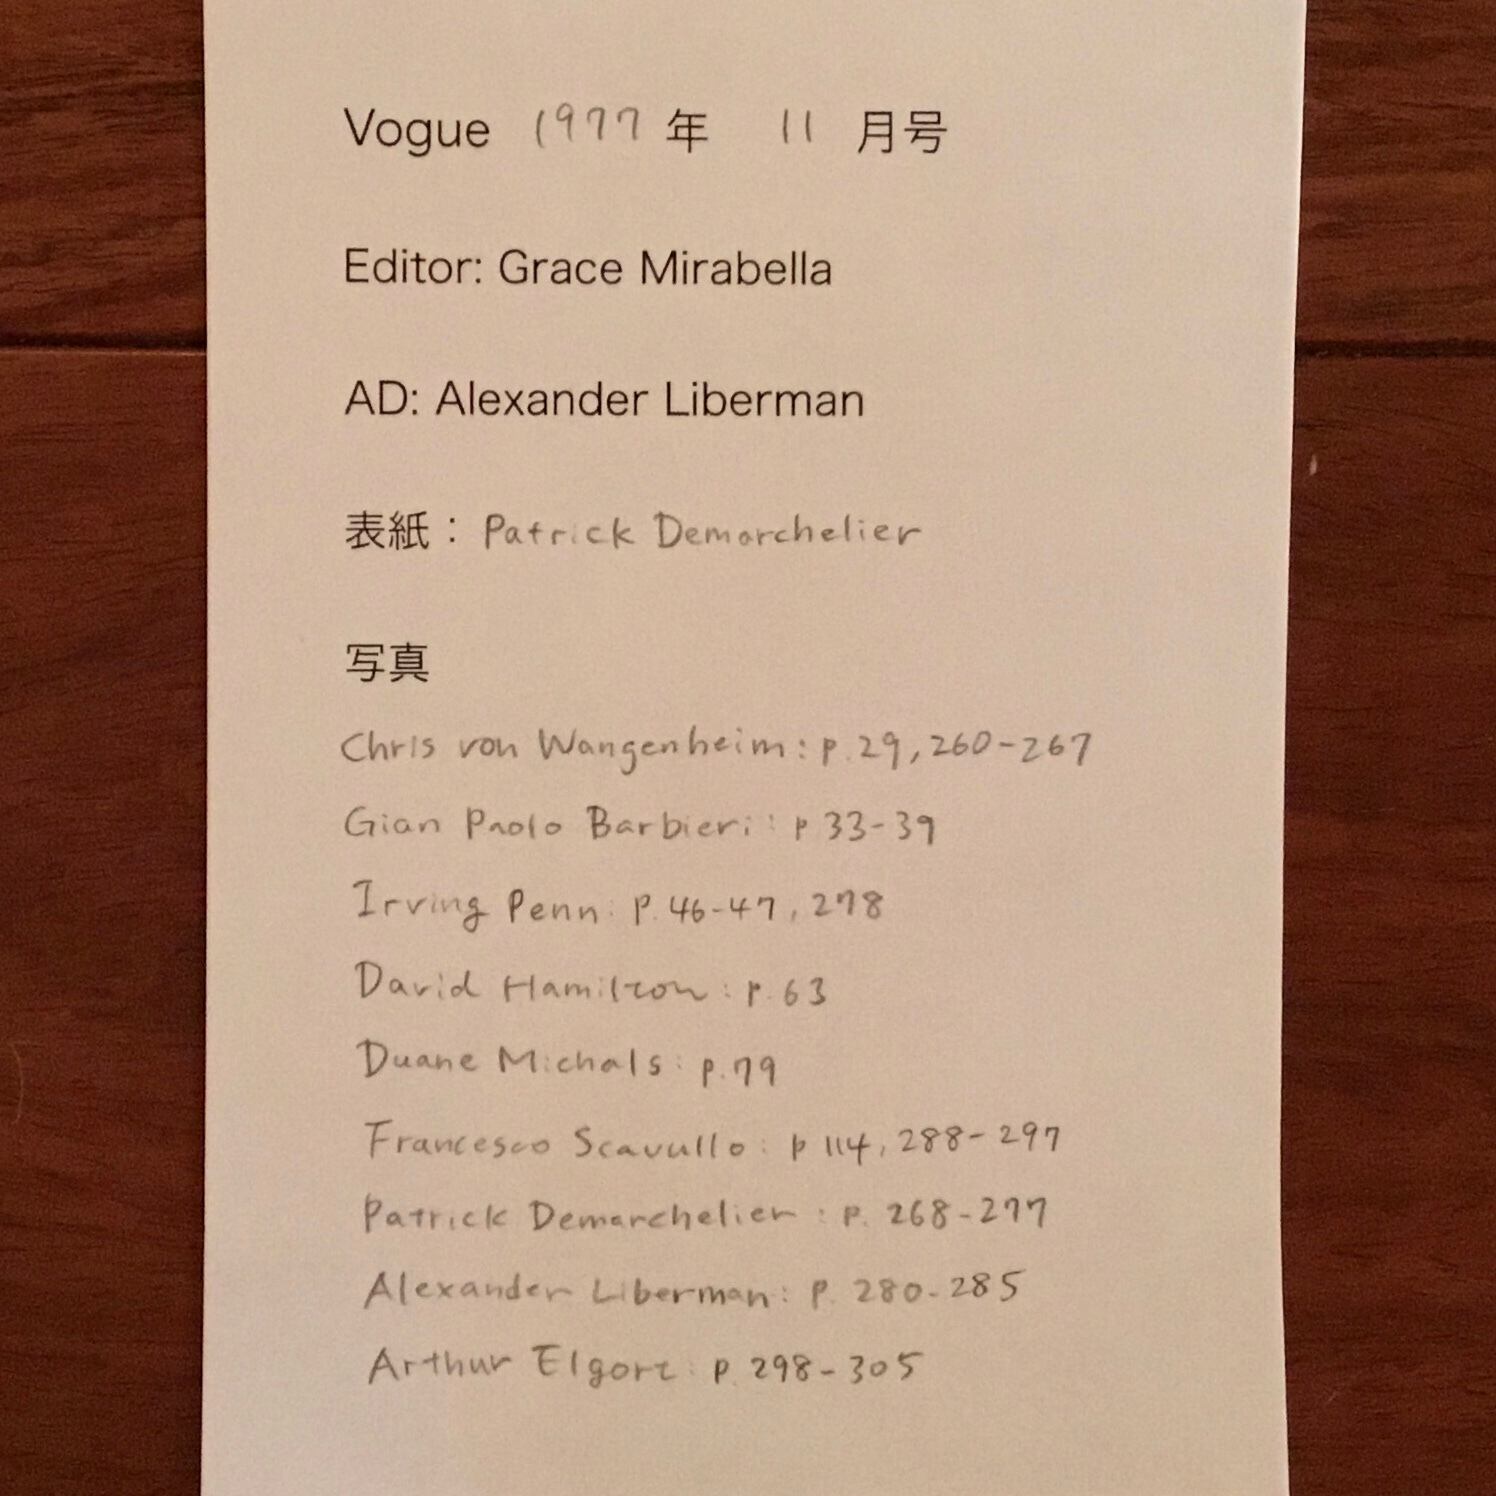 Vogue 1977 年 11 月号
Editor: Grace Mirabella
AD: Alexander Liberman
表紙：Patrick Demarchelier
写真
Chris von Wangenheim: p.29, 260-267
Gian Paolo Barbieri: p 33-39
Irving Penn: p.46-47, 278
David Hamilton: p.63
Duane Michals: p.79
Francesco Scavullo: p 114, 288-297
Patrick Demarchelier: p. 268-277
Alexander Liberman: p. 280-285
Arthur Elgort: p. 298-305